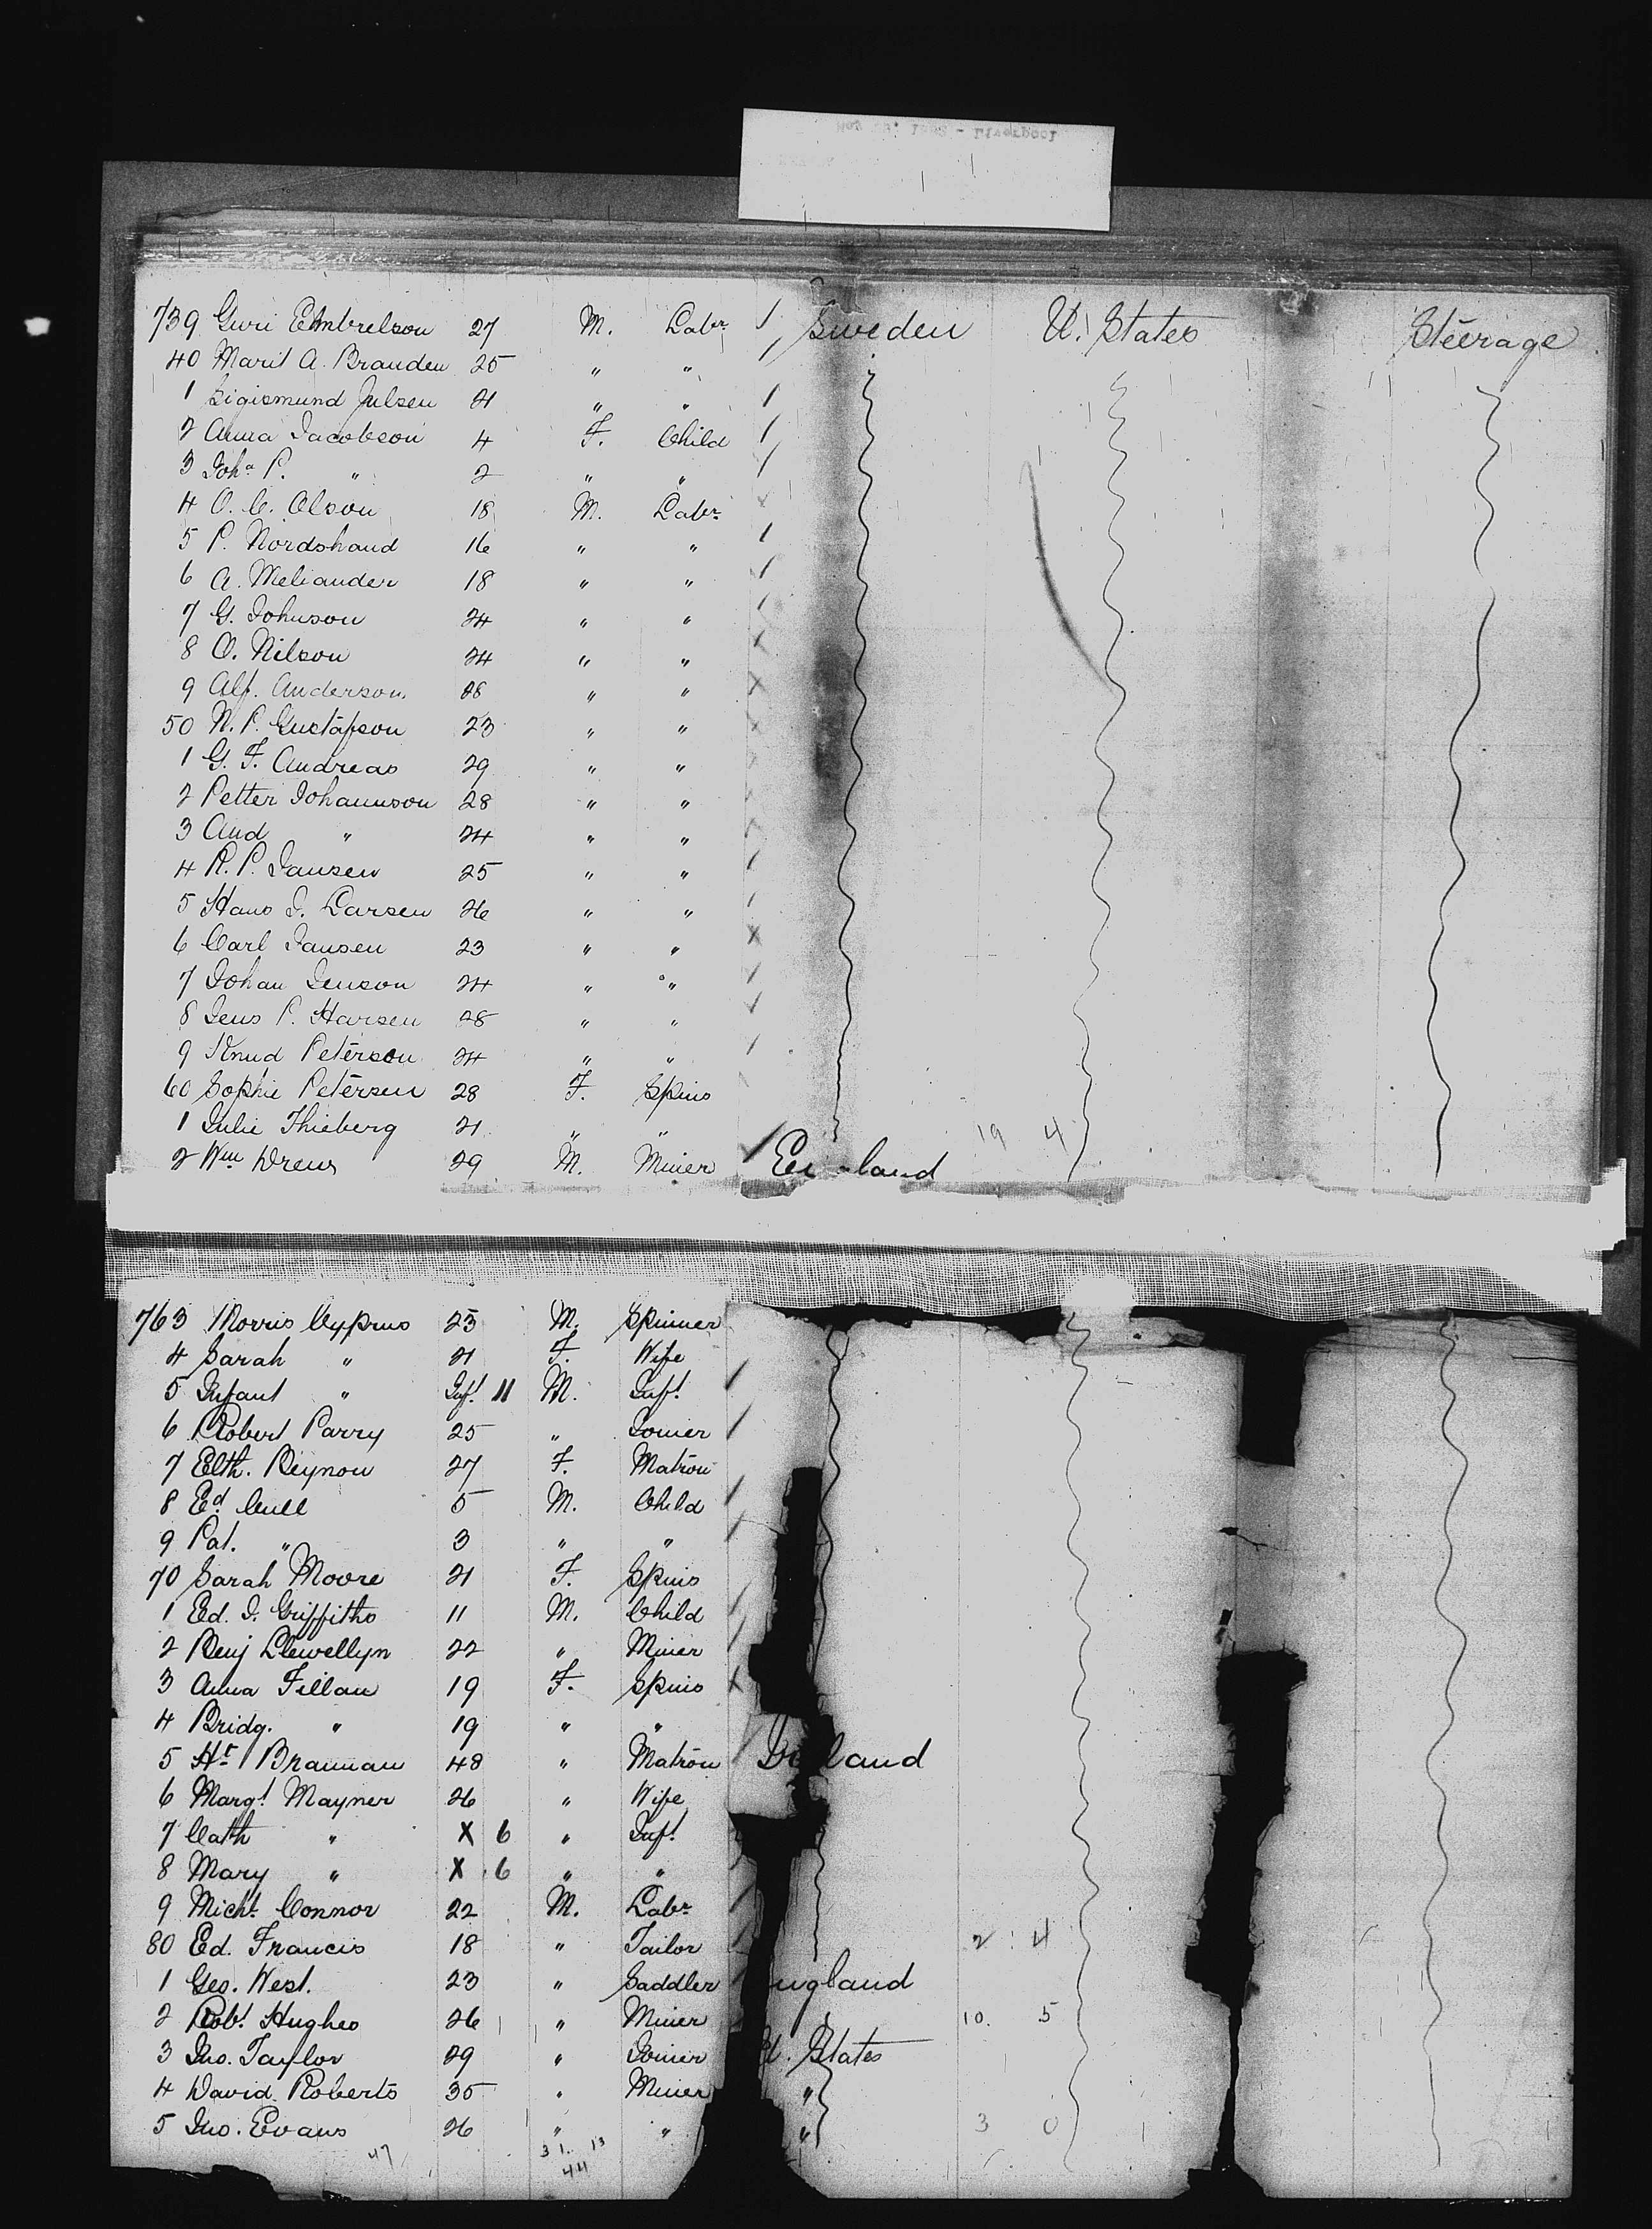 Liverpool
739 Guri Embrelson 27 M. Labr Sweden U. States Steerage
40 Marit A. Brauden 25 " "
1 Sigismund Julsen 21 " "
2 Anna Jacobson 4 F. Child
3 Joha P. " 2 " "
4 O. C. Olson 18 M. Labr
5 P. Nordshand 16 " "
6 A. Meliander 18 " "
7 G. Johnson 24 " "
8 O. Nilson 24 " "
9 Alf. Anderson 28 " "
50 N. P. Gustafson 23 " "
1 G. F. Andreas 29 " "
2 Petter Johannson 28 " "
3 And " 24 " "
4 R. P. Jansen 25 " "
5 Hans J. Larsen 26 " "
6 Carl Jansen 23 " "
7 Johan Jenson 24 " "
8 Jens P. Hansen 28 " "
9 Knud Peterson 24 " "
60 Sophie Petersen 28 F. Spins
1 Julie Thieberg 21 " " 19 4
2 Wm Drews 29 M. Miner England
763 Morris Cyprus 23 M. Spinner
4 Sarah " 21 F. Wife
5 Infant " Inft 11 M. Inft
6 Robert Parry 25 " Joiner
7 Elth. Beynon 27 F. Matron
8 Ed Cull 5 M. Child
9 Pat. " 3 " "
70 Sarah Moore 21 F. Spins
1 Ed. J. Griffiths 11 M. Child
2 Benj Llewellyn 22 " Miner
3 Anna Fillan 19 F. Spins
4 Bridg. " 19 " "
5 Ht Brannan 48 " Matron Ireland
6 Margt Mayner 26 " Wife
7 Cath " X 6 " Inft
8 Mary " X 6 " "
9 Michl Connor 22 M. Labr
80 Ed. Francis 18 " Tailor 2 4
1 Geo. West. 23 " Saddler ngland
2 Robt Hughes 26 " Miner 10. 5
3 Jno. Taylor 29 " Joiner U. States
4 David Roberts 35 " Miner "
5 Jno. Evans 26 " " " 3 0
47 31. 13
44